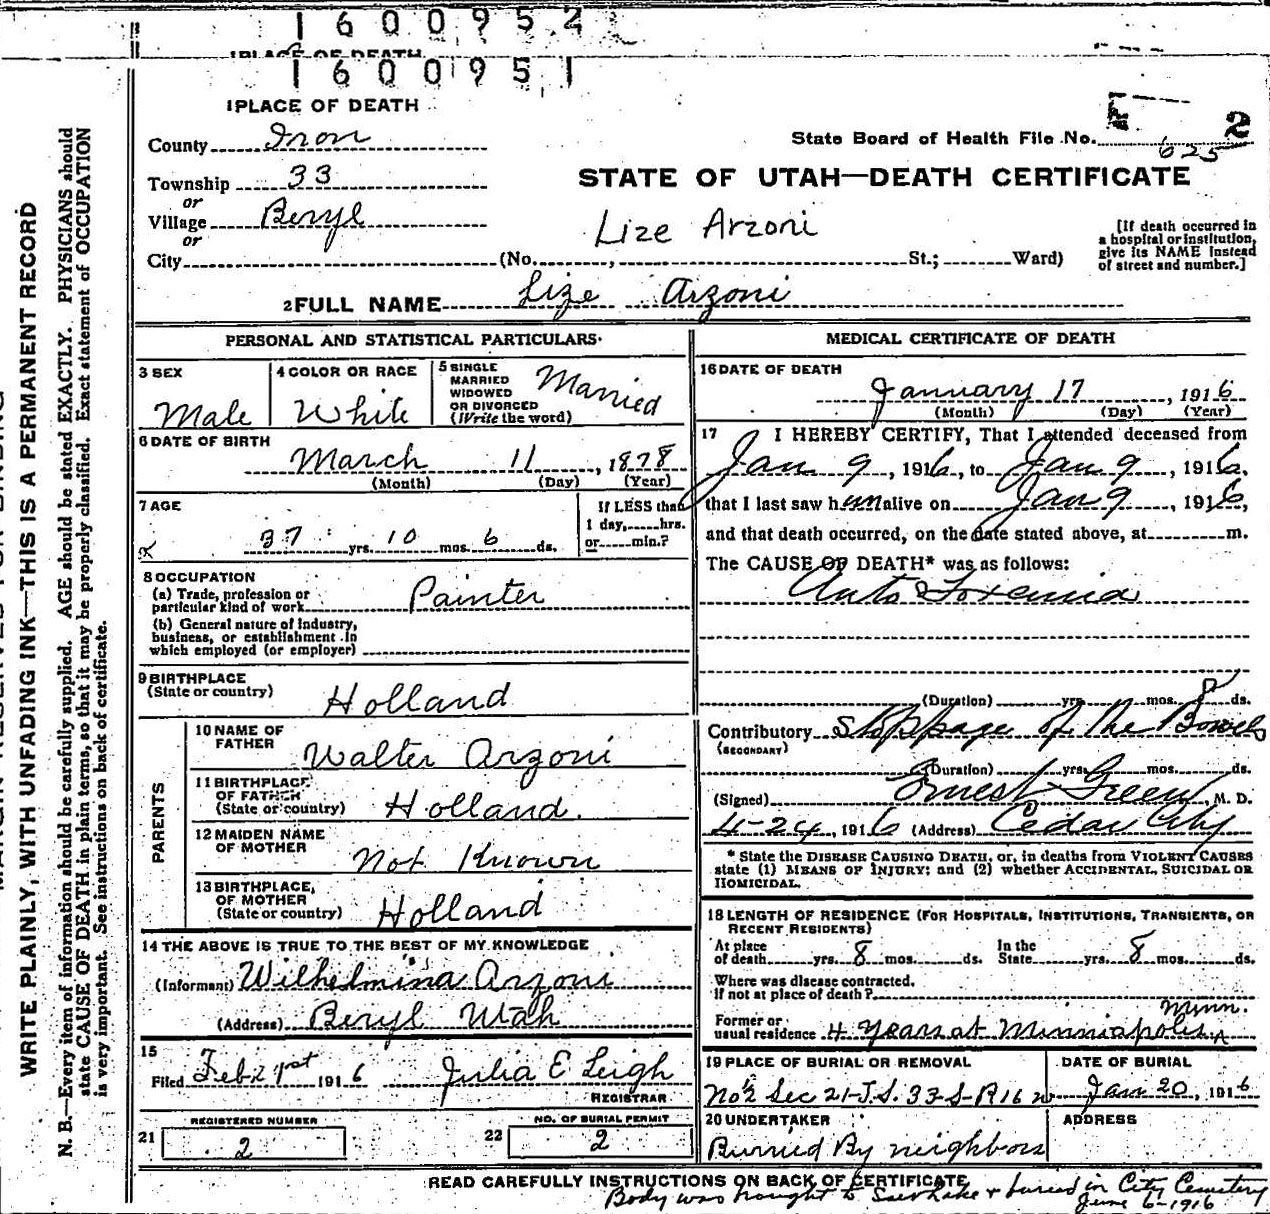 1600952
1 PLACE OF DEATH
1600951
1 PLACE OF DEATH
County Iron
Township 33
or
Village Beryl
or
City (No. , St.; Ward)
State Board of Health File No. 2
625
STATE OF UTAH—DEATH CERTIFICATE
Lize Arzoni
[If death occurred in
a hospital or institution,
give its NAME instead
of street and number.]
2 FULL NAME Lize Arzoni
PERSONAL AND STATISTICAL PARTICULARS.
3 SEX
Male
4 COLOR OR RACE
White
5 SINGLE
MARRIED
WIDOWED
OR DIVORCED
(Write the word)
Married
6 DATE OF BIRTH
March 11, 1878
(Month) (Day) (Year)
7 AGE
37 yrs. 10 mos. 6 ds.
If LESS than
1 day, hrs.
or min.?
8 OCCUPATION
(a) Trade, profession or
particular kind of work Painter
(b) General nature of Industry,
business, or establishment in
which employed (or employer)
9 BIRTHPLACE
(State or country) Holland
PARENTS
10 NAME OF
FATHER Walter Arzoni
11 BIRTHPLACE
OF FATHER
(State or country) Holland.
12 MAIDEN NAME
OF MOTHER Not Known
13 BIRTHPLACE,
OF MOTHER
(State or country) Holland
14 THE ABOVE IS TRUE TO THE BEST OF MY KNOWLEDGE
(Informant) Wilhelmina Arzoni
(Address) Beryl Utah
15
Filed Feb 21st 1916 Julia E Leigh
REGISTRAR
21 REGISTERED NUMBER
2
22 NO. OF BURIAL PERMIT
2
MEDICAL CERTIFICATE OF DEATH
16 DATE OF DEATH
January 17, 1916
(Month) (Day) (Year)
17 I HEREBY CERTIFY, That I attended deceased from
Jan 9, 1916, to Jan 9, 1916,
that I last saw him alive on Jan 9, 1916,
and that death occurred, on the date stated above, at m.
The CAUSE OF DEATH* was as follows:
Auto Toxemia
(Duration) yrs. mos. 8 ds.
Contributory Stoppage of the Bowels
(SECONDARY)
(Duration) yrs. mos. ds.
(Signed) Ernest Green, M. D.
4-24, 1916 (Address) Cedar City
* State the DISEASE CAUSING DEATH, or, in deaths from VIOLENT CAUSES
state (1) MEANS OF INJURY; and (2) whether ACCIDENTAL, SUICIDAL OR
HOMICIDAL.
18 LENGTH OF RESIDENCE (FOR HOSPITALS, INSTITUTIONS, TRANSIENTS, OR
RECENT RESIDENTS)
At place
of death yrs. 8 mos. ds.
In the
State yrs. 8 mos. ds.
Where was disease contracted.
if not at place of death?
Former or
usual residence 4 Years at Minniapolis, Minn.
19 PLACE OF BURIAL OR REMOVAL
No 2 Sec 21-T.S. 33-S-R 16 w
DATE OF BURIAL
Jan 20, 1916
20 UNDERTAKER
Burried By neighbors
ADDRESS
READ CAREFULLY INSTRUCTIONS ON BACK OF CERTIFICATE
Body was brought to Salt Lake & buried in City Cemetery
June 6-1916
WRITE PLAINLY, WITH UNFADING INK—THIS IS A PERMANENT RECORD
N. B.—Every item of information should be carefully supplied. AGE should be stated EXACTLY. PHYSICIANS should
state CAUSE OF DEATH in plain terms, so that it may be properly classified. Exact statement of OCCUPATION
is very important. See instructions on back of certificate.